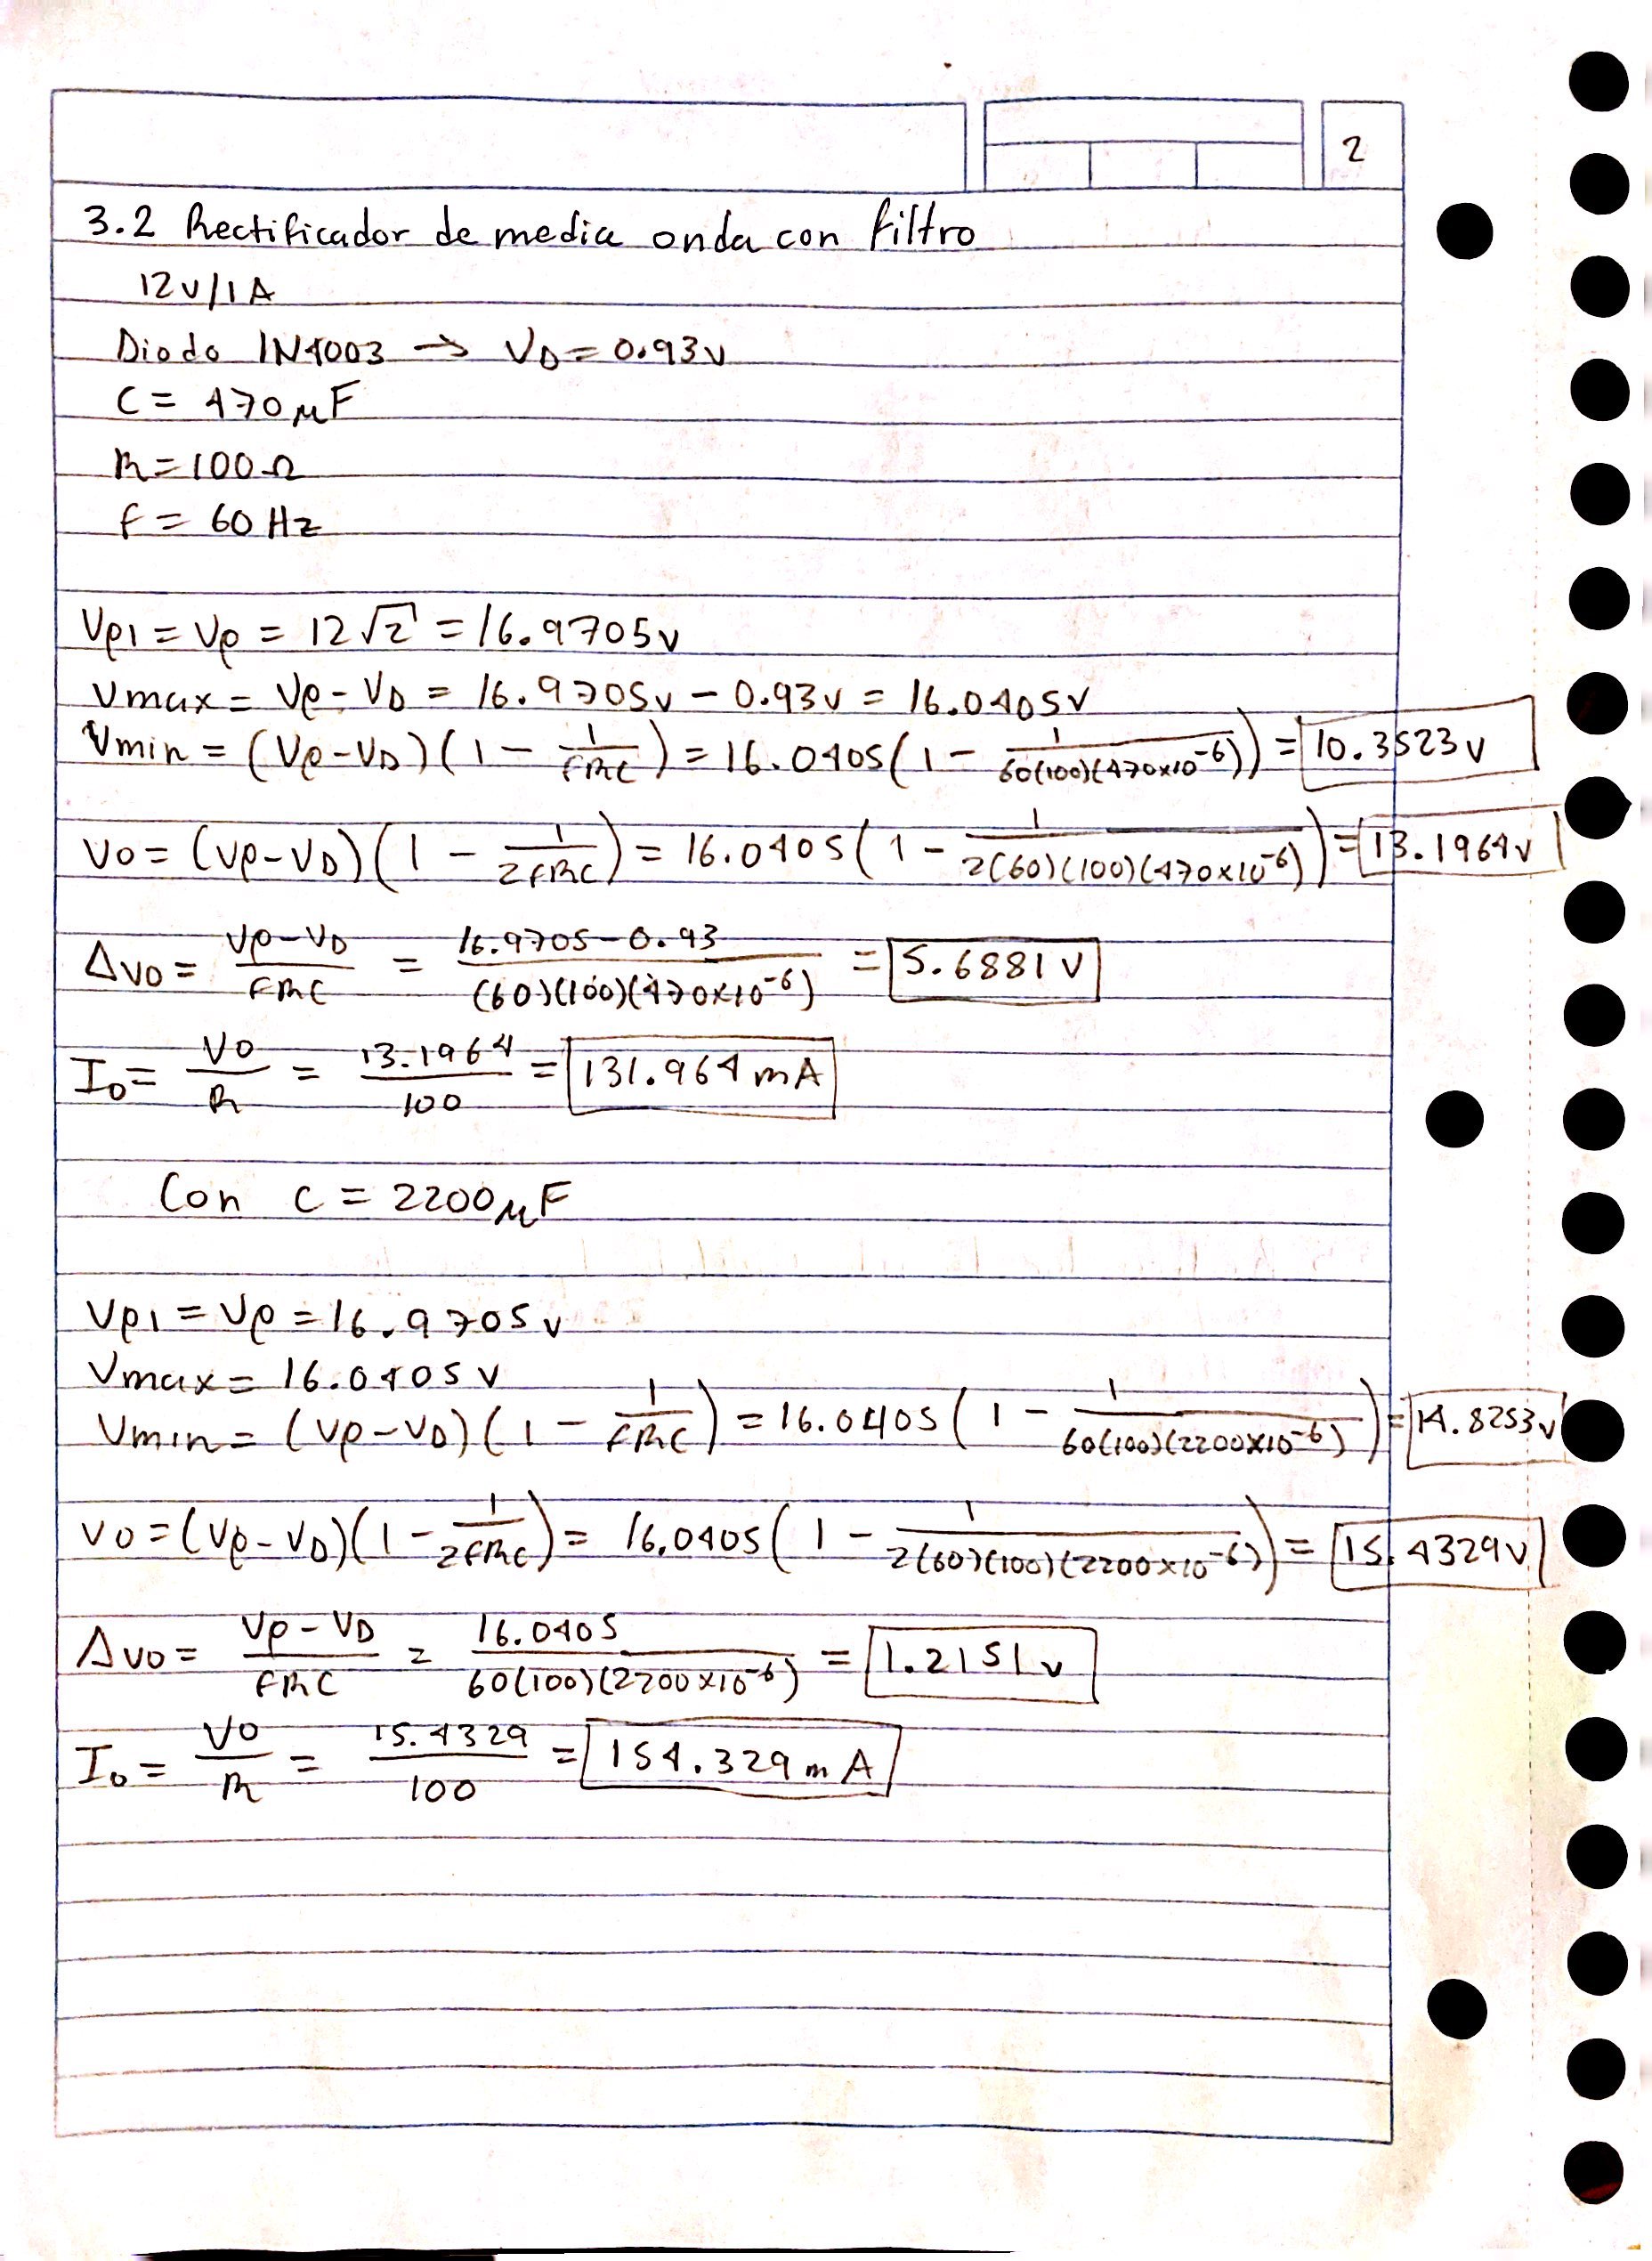 2
3.2 Rectificador de media onda con filtro
12v/1A
Diodo 1N4003 → VD = 0.93v
C = 470μF
R = 100Ω
f = 60 Hz
Vp1 = Vp = 12√2 = 16.9705v
Vmax = Vp - VD = 16.9705v - 0.93v = 16.0405v
Vmin = (Vp-VD)(1 - 1/fRC) = 16.0405(1 - 1/60(100)(470x10⁻⁶)) = 10.3523v
Vo = (Vp-VD)(1 - 1/2fRC) = 16.0405(1 - 1/2(60)(100)(470x10⁻⁶)) = 13.1964v
ΔVo = Vp-VD/fRC = 16.9705-0.93/(60)(100)(470x10⁻⁶) = 5.6881v
Io = Vo/R = 13.1964/100 = 131.964mA
Con C = 2200μF
Vp1 = Vp = 16.9705v
Vmax = 16.0405v
Vmin = (Vp-VD)(1 - 1/fRC) = 16.0405(1 - 1/60(100)(2200x10⁻⁶)) = 14.8253v
Vo = (Vp-VD)(1 - 1/2fRC) = 16.0405(1 - 1/2(60)(100)(2200x10⁻⁶)) = 15.4329v
ΔVo = Vp-VD/fRC = 16.0405/60(100)(2200x10⁻⁶) = 1.2151v
Io = Vo/R = 15.4329/100 = 154.329mA